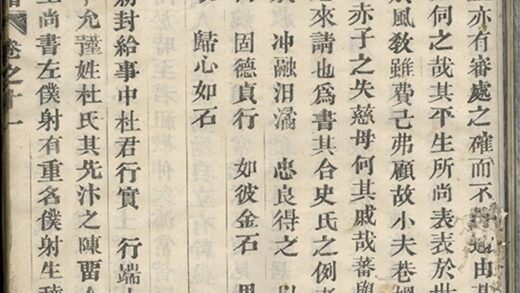 亦有審處之確而不由
何之哉其平生所尚表表於世
風敎雖費己弗顧故小夫巷
赤子之失慈母何其戚哉蕃
來請也爲書其合史氏之例
冲融汨潏　忠良得之
固德貞行　如彼金石
歸心如石
封給事中杜君行實　行端
允姓杜氏其先汴之陳畱人
尚書左僕射有重名僕射生
卷之十一